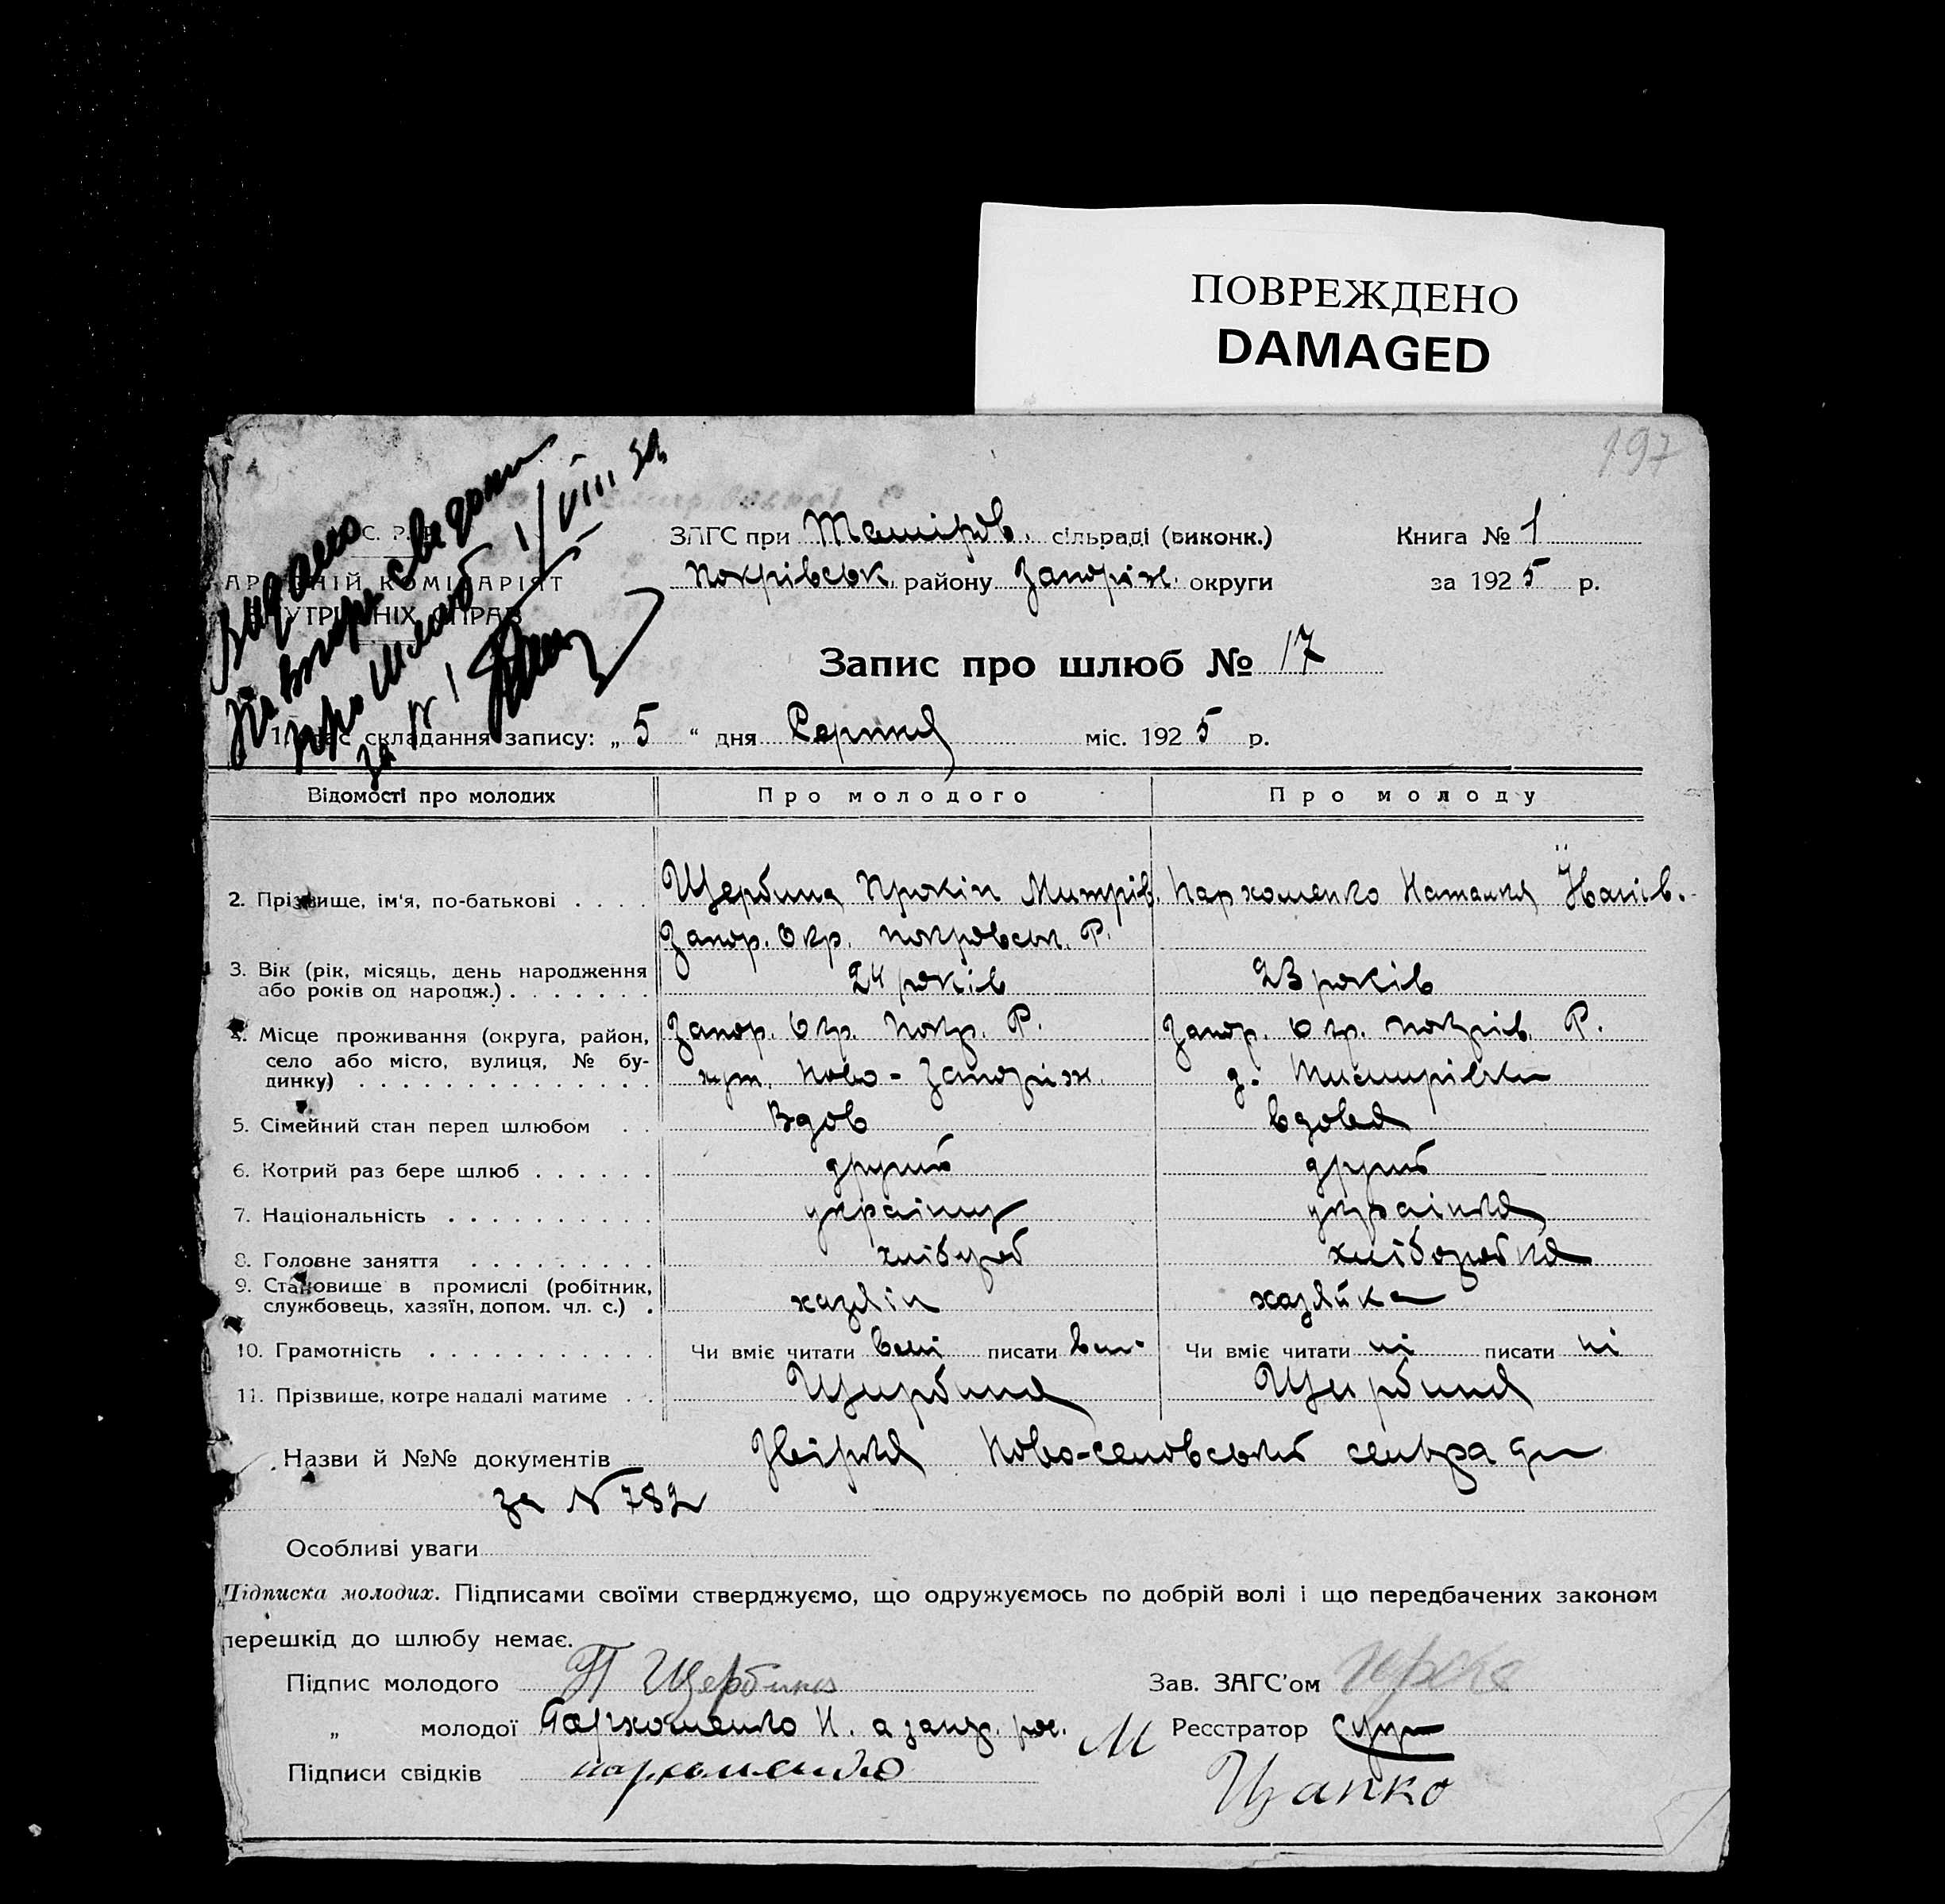 ПОВРЕЖДЕНО
DAMAGED
197
С. Р. Р.
ЗАГС при Темірів. сільраді (виконк.) Книга № 1
АРОДНІЙ КОМІСАРІЯТ
Покрівськ. району Запоріж. округи за 1925 р.
ВНУТРІШНІХ СПРАВ
Видано
на вторе сведоки
про шлюб 1/VIII
за № 1
Запис про шлюб № 17
1. Час складання запису: „5“ дня Серпня міс. 1925 р.
Відомості про молодих Про молодого Про молоду
2. Прізвище, ім'я, по-батькові . . . . Щербина Прокіп Митрів. Пархоменко Наталка
Запор. Окр. Покровськ. Р.
3. Вік (рік, місяць, день народження
або років од народж.) . . . . . . . 24 років 23 років
4. Місце проживання (округа, район, Запор. Окр. Покр. Р. Запор. Окр. Покрів. Р.
село або місто, вулиця, № бу-
динку) . . . . . . . . . . . . . . хут. Ново-Запоріж. д.
5. Сімейний стан перед шлюбом . . Вдов вдова
6. Котрий раз бере шлюб . . . . . . другий другий
7. Національність . . . . . . . . . . українец українка
8. Головне заняття . . . . . . . . . хлібороб хліборобка
9. Становище в промислі (робітник,
службовець, хазяїн, допом. чл. с.) . хазяін хазяйка
10. Грамотність . . . . . . . . . . . Чи вміє читати вміі писати вм. Чи вміє читати ні писати ні
11. Прізвище, котре надалі матиме . . Щербина Щербина
Назви й №№ документів Ново-селовський сельради
за № 782
Особливі уваги
Підписка молодих. Підписами своїми стверджуємо, що одружуємось по добрій волі і що передбачених законом
перешкід до шлюбу немає.
Підпис молодого П Щербина Зав. ЗАГС'ом
„ молодої Пархоменко Н. а Реєстратор
Підписи свідків пархоменко Цапко